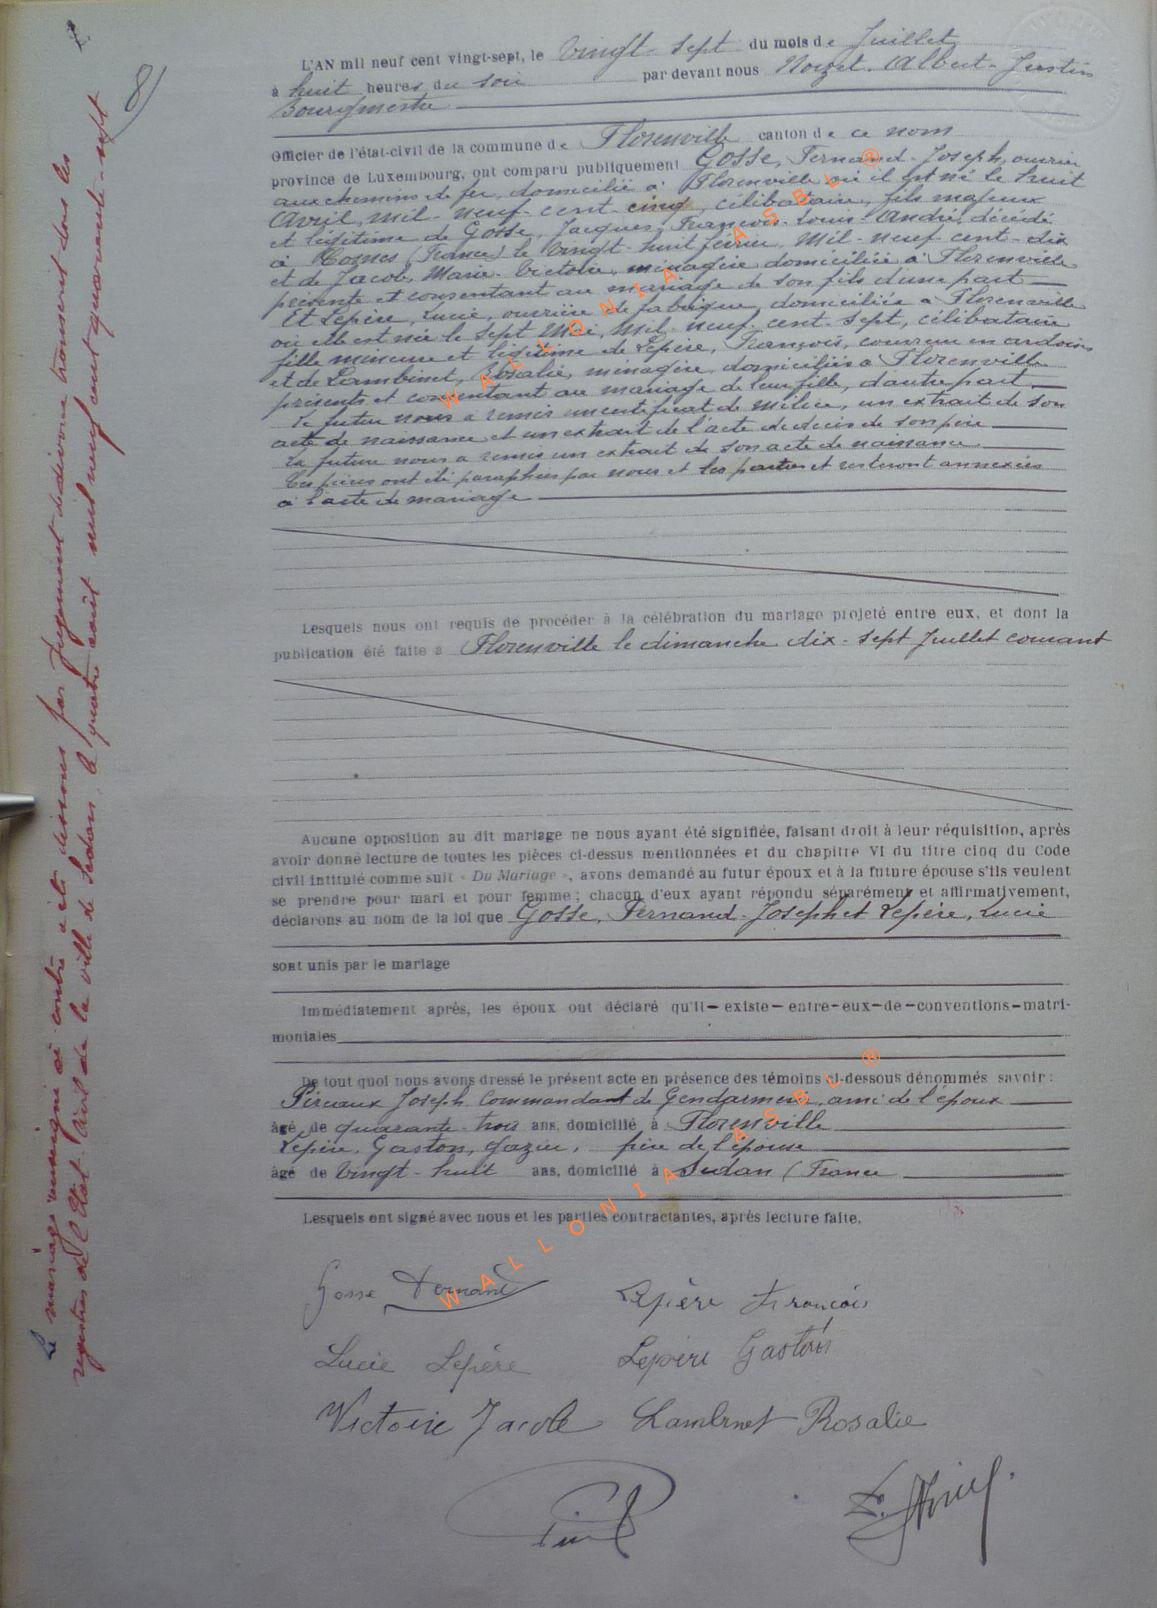 8)
L'AN mil neuf cent vingt-sept, le Vingt-sept du mois de Juillet
à huit heures du soir par devant nous Nozet, Albert-Justin
Bourgmestre
Officier de l'état-civil de la commune de Florenville canton de ce nom
province de Luxembourg, ont comparu publiquement Gosse, Fernand-Joseph, ouvrier
aux chemins de fer, domicilié à Florenville où il est né le huit
Avril, mil-neuf-cent-cinq, célibataire, fils majeur
et légitime de Gosse, Jacques, François-Louis-André, décédé
à (France) le vingt-huit février, mil-neuf cent-dix
et de Jacob, Marie-Victoire, ménagère domiciliée à Florenville
présente et consentant au mariage de son fils d'une part
Et Lepère, Lucie, ouvrière de fabrique, domiciliée à Florenville
où elle est née le sept Mai, mil-neuf-cent-sept, célibataire
fille mineure et légitime de Lepère, François, couvreur en ardoises
et de Lambinet, Rosalie, ménagère, domiciliés à Florenville
présents et consentant au mariage de leur fille, d'autre part
Le futur nous a remis un certificat de milice, un extrait de son
acte de naissance et un extrait de l'acte de décès de son père
La future nous a remis un extrait de son acte de naissance
Ces pièces ont été paraphées par nous et les parties et resteront annexées
à l'acte de mariage
Lesquels nous ont requis de procéder à la célébration du mariage projeté entre eux, et dont la
publication été faite à Florenville le dimanche dix-sept Juillet courant
Aucune opposition au dit mariage ne nous ayant été signifiée, faisant droit à leur réquisition, après
avoir donné lecture de toutes les pièces ci-dessus mentionnées et du chapitre VI du titre cinq du Code
civil intitulé comme suit « Du Mariage », avons demandé au futur époux et à la future épouse s'ils veulent
se prendre pour mari et pour femme ; chacun d'eux ayant répondu séparément et affirmativement,
déclarons au nom de la loi que Gosse, Fernand-Joseph et Lepère, Lucie
sont unis par le mariage
Immédiatement après, les époux ont déclaré qu'il-existe-entre-eux-de-conventions-matri-
moniales
De tout quoi nous avons dressé le présent acte en présence des témoins ci-dessous dénommés savoir :
Pireaux Joseph Commandant de Gendarmerie, ami de l'époux
âgé de quarante-trois ans, domicilié à Florenville
Lepère, Gaston, gazier, frère de l'épouse
âgé de Vingt-huit ans, domicilié à Sedan (France
Lesquels ont signé avec nous et les parties contractantes, après lecture faite.
Gosse Fernand Lepère François
Lucie Lepère Lepère Gaston
Victoire Jacob Lambinet Rosalie
Le mariage mentionné ci contre a été dissous par jugement de divorce transcrit dans les
registres de l'Etat-Civil de la ville de Sedan, le quatre août mil neuf cent quarante-sept
WALLONIA ASBL ®
WALLONIA ASBL ®